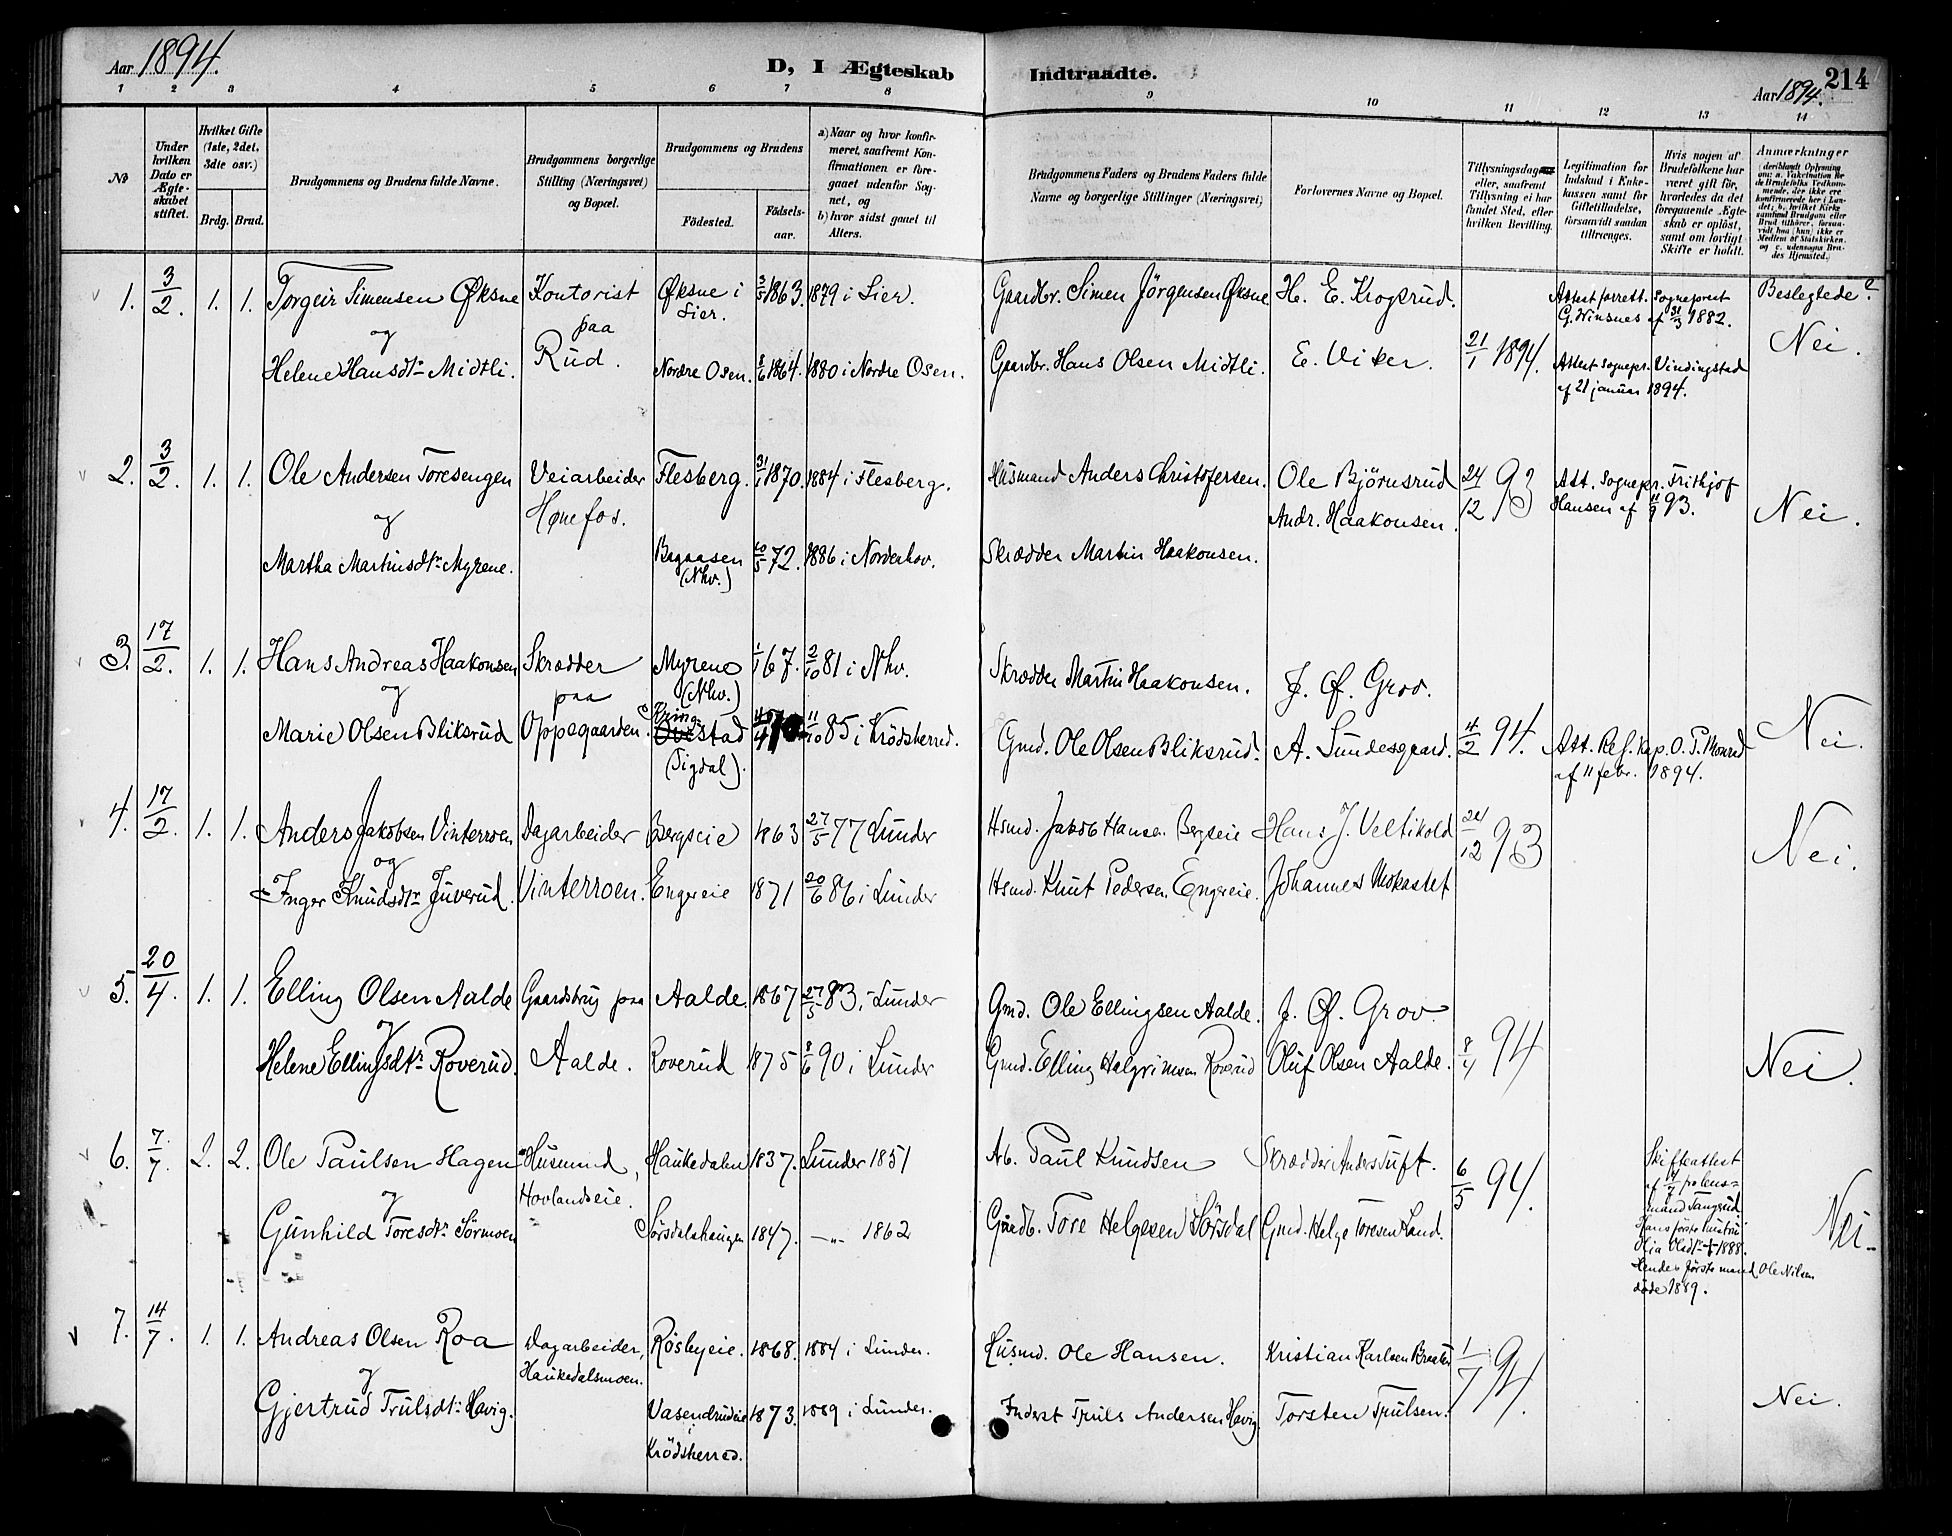 Aar 1894.
D, I Ægteskab Indtraadte.
214
Aar 1894.
1 2 3 4 5 6 7 8 9 10 11 12 13 14
No
Under hvilken Dato er Ægteskabet stiftet.
Hvilket Gifte (1ste, 2det, 3die osv.)
Brdg. Brud.
Brudgommens og Brudens fulde Navne.
Brudgommens borgerlige Stilling (Næringsvei) og Bopæl.
Brudgommens og Brudens
Fødested.
Fødselsaar.
a) Naar og hvor konfirmeret, saafremt Konfirmationen er foregaaet udenfor Sognet, og
b) hvor sidst gaaet til Alters.
Brudgommens Faders og Brudens Faders fulde Navne og borgerlige Stillinger (Næringsvei)
Forlovernes Navne og Bopæl.
Tillysningsdagene eller, saafremt Tillysning ei har fundet Sted, efter hvilken Bevilling.
Legitimation for Indskud i Enkekassen samt for Giftetilladelse, forsaavidt saadan tiltrænges.
Hvis nogen af Brudefolkene har været gift før, hvorledes da det foregaaende Ægteskab er opløst, samt om lovligt Skifte er holdt.
Anmærkninger
1. 3/2. 1. 1. Torgeir Simensen Øksne Kontorist Øksne i Sier. 3/5 1863. 1879 i Lier. Gaardbr. Simen Jörgensen Øksne H. E. Krogsrud. Attest forrett. Sogneprest G. Winsnes af 31/3 1882. Beslegtede?
og paa Rud.
Helene Hansdtr Midtli. Nordre Osen. 8/6 1864. 1880 i Nordre Osen. Gaardbr. Hans Olsen Midtli. E. Viker. 21/1 1894. Attest Sognepr. Vindingstad af 21 januar 1894. Nei.
2. 3/2. 1. 1. Ole Andersen Toresengen Veiarbeider Flesberg. 31/1 1870. 1884 i Flesberg. Husmand Anders Christofersen. Ole Björnsrud 24/12 93 Att. Sognepr. Frithjof Hansen af 11/9 93. Nei.
og Hønefos. Andr. Haakonsen.
Martha Martinsdtr Myrene. Bagaasen (Nhv.) 10/5 72. 1886 i Norderhov. Skrædder Martin Haakonsen.
3. 17/2. 1. 1. Hans Andreas Haakonsen Skrædder Myrene (Nhv.) 1/1 67. 2/10 81 i Nhv. Skrædder Martin Haakonsen. J. Of. Grov.
og paa
Marie Olsen Bliksrud Oppegaarden. Kringstad (Sigdal). 11/10 85 i Krödsherred. Gmd. Ole Olsen Bliksrud. A. Sundesgaard. 4/2 94. Att. Res. Kap. O. P. Monrad af 11 febr. 1894. Nei.
4. 17/2. 1. 1. Anders Jakobsen Vinterroen Dagarbeider Bergseie 1863 27/5 77 Lunder Hsmd. Jakob Hansen Bergseie Hans J. Veltikold 24/12 93 Nei.
og
Inger Knudsdtr Juverud. Vinterroen. Engereie 1871 20/6 86 i Lunder Hsmd. Knut Pedersen Engereie. Johannes Mokastet
5. 20/4. 1. 1. Elling Olsen Aalde Gaardsbrug paa Aalde. 1867 27/5 83 i Lunder Gmd. Ole Ellingsen Aalde. J. Of. Grov.
og
Helene Ellingsdtr Roverud. Aalde. Roverud 1875 8/6 90 i Lunder Gmd. Elling Halgrimsen Roverud Oluf Olsen Aalde. 8/4 94 Nei.
6. 7/7. 2. 2. Ole Paulsen Hagen Husmand, Haukedalen 1837. Lunder 1851 Ab. Paul Knudsen Skrædder Anders Tuft. 6/5 94. Skifteattest
og Hovlandseie.
Gunhild Toresdtr Sörmoen Sørsdalshaugen 1847. —"— 1862 Gaardb. Tore Helgesen Sörsdal Gmd. Helge Toresen Sand. Nei.
Hans förste hustru
Olia Olsdtr + 1888.
Hendes förste mand Ole Nilsen
döde 1889.
7. 14/7. 1. 1. Andreas Olsen Roa Dagarbeider, Haukedalsmoen. Rösbyeie. 1868. 1884 i Lunder. Husmd. Ole Hansen. Kristian Karlsen Braaten 1/7 94.
og
Gjertrud Trulsdtr Hævig. Vasendrudeie i Krödsherred. 1873. 1889 i Lunder. Inderst Truls Andersen Hævig Torsten Trulsen. Nei.